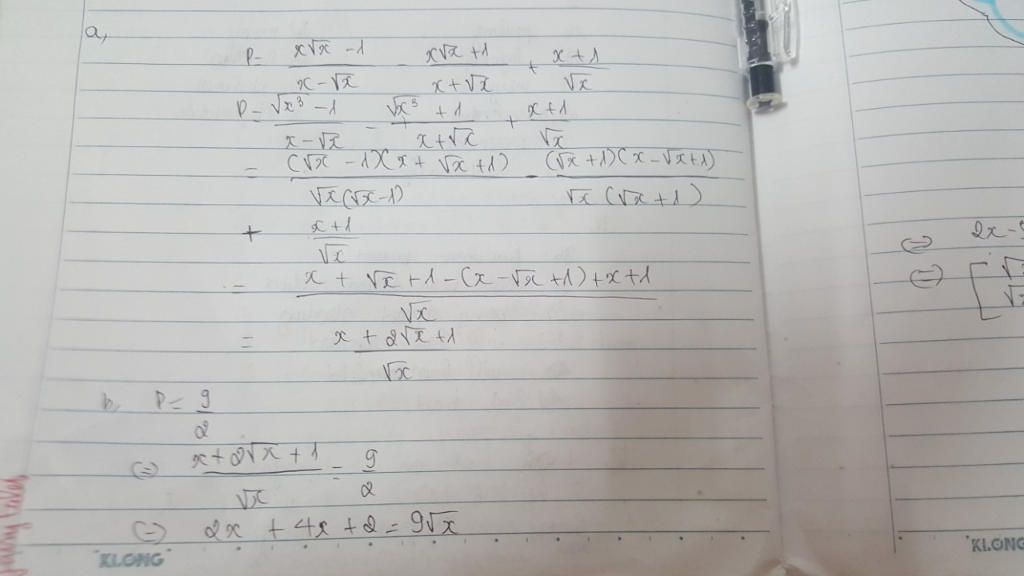 a,
P = (x√x − 1)/(x − √x) − (x√x + 1)/(x + √x) + (x + 1)/√x
P = (√x³ − 1)/(x − √x) − (√x³ + 1)/(x + √x) + (x + 1)/√x
= (√x − 1)(x + √x + 1)/(√x(√x − 1)) − (√x + 1)(x − √x + 1)/(√x(√x + 1))
+ (x + 1)/√x
= (x + √x + 1 − (x − √x + 1) + x + 1)/√x
= (x + 2√x + 1)/√x
b, P = 9/2
(=) (x + 2√x + 1)/√x = 9/2
(=) 2x + 4x + 2 = 9√x
KLONG
(=) 2x −
(=) [ √x
√x
KLONG